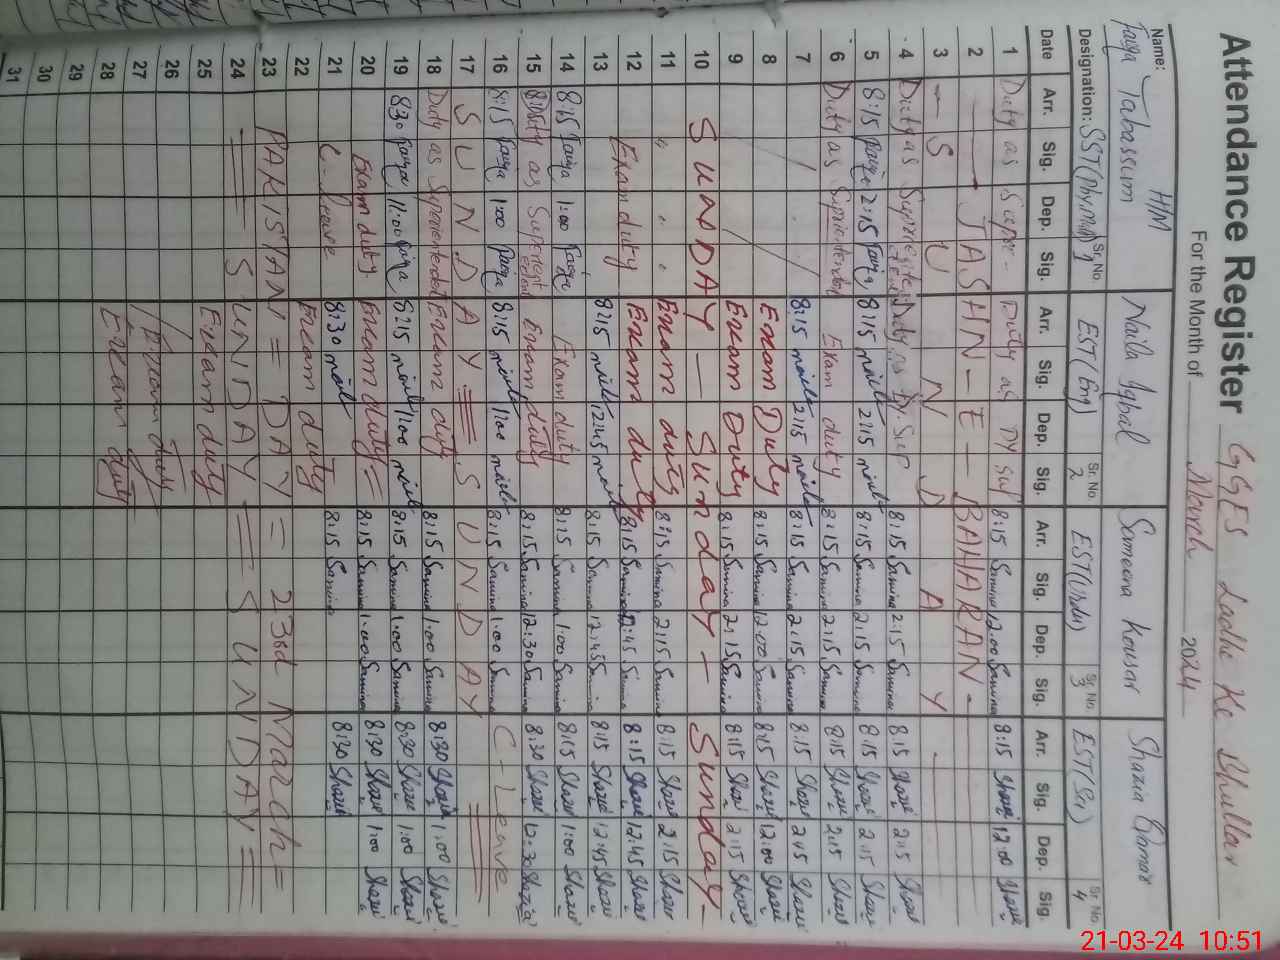 Attendance Register GGES Ladhe Ke Bhullar
For the Month of March 2024
Name: HM Naila Iqbal Sameena Kousar Shazia Qamar
Faiza Tabassum
Designation: SST(Phy,Math) Sr. No. 1 EST(Eng) Sr. No. 2 EST(Urdu) Sr. No. 3 EST(Sci) Sr. No. 4
Date Arr. Sig. Dep. Sig. Arr. Sig. Dep. Sig. Arr. Sig. Dep. Sig. Arr. Sig. Dep. Sig.
1 Duty as Super- Duty as Dy Sup 8:15 Samina 12:00 Samina 8:15 Shazia 12:00 Shazia
2 — JASHN-E-BAHARAN.
3 — S U N D A Y —
4 Duty as Dy. Sup 8:15 Samina 2:15 Samina 8:15 Shazia 2:15 Shazia
5 8:15 Faiza 2:15 Faiza 8:15 Naila 2:15 Naila 8:15 Samina 2:15 Samina 8:15 Shazia 2:15 Shazia
6 Duty as Exam duty 8:15 Samina 2:15 Samina 8:15 Shazia 2:15 Shazia
7 8:15 Naila 2:15 Naila 8:15 Samina 2:15 Samina 8:15 Shazia 2:15 Shazia
8 Exam Duty 8:15 Samina 12:00 Samina 8:15 Shazia 12:00 Shazia
9 Exam Duty 8:15 Samina 2:15 Samina 8:15 Shazia 2:15 Shazia
10 SUNDAY — Sunday — Sunday-
11 " " " Exam duty 8:15 Samina 2:15 Samina 8:15 Shazia 2:15 Shazia
12 Exam duty Exam duty 8:15 Samina 12:45 Samina 8:15 Shazia 12:45 Shazia
13 8:15 Naila 12:45 Naila 8:15 Samina 12:45 Samina 8:15 Shazia 12:45 Shazia
14 8:15 Faiza 1:00 Faiza Exam duty 8:15 Samina 1:00 Samina 8:15 Shazia 1:00 Shazia
15 Duty as Exam duty 8:15 Samina 12:30 Samina 8:30 Shazia 12:30 Shazia
16 8:15 Faiza 1:00 Faiza 8:15 Naila 1:00 Naila 8:15 Samina 1:00 Samina C-Leave
17 S U N D A Y = S U N D A Y =
18 Duty as Exam duty 8:15 Samina 1:00 Samina 8:30 Shazia 1:00 Shazia
19 8:30 Faiza 11:00 Faiza 8:15 Naila 1:00 Naila 8:15 Samina 1:00 Samina 8:30 Shazia 1:00 Shazia
20 Exam duty Exam duty = 8:15 Samina 1:00 Samina 8:30 Shazia 1:00 Shazia
21 C-Leave 8:30 Naila 8:15 Samina 8:30 Shazia
22 Exam duty
23 PAKISTAN = DAY = 23rd March =
24 = S U N D A Y = S U N D A Y =
25 Exam duty
26
27 Exam duty
28 Exam duty
29
30
31
21-03-24 10:51